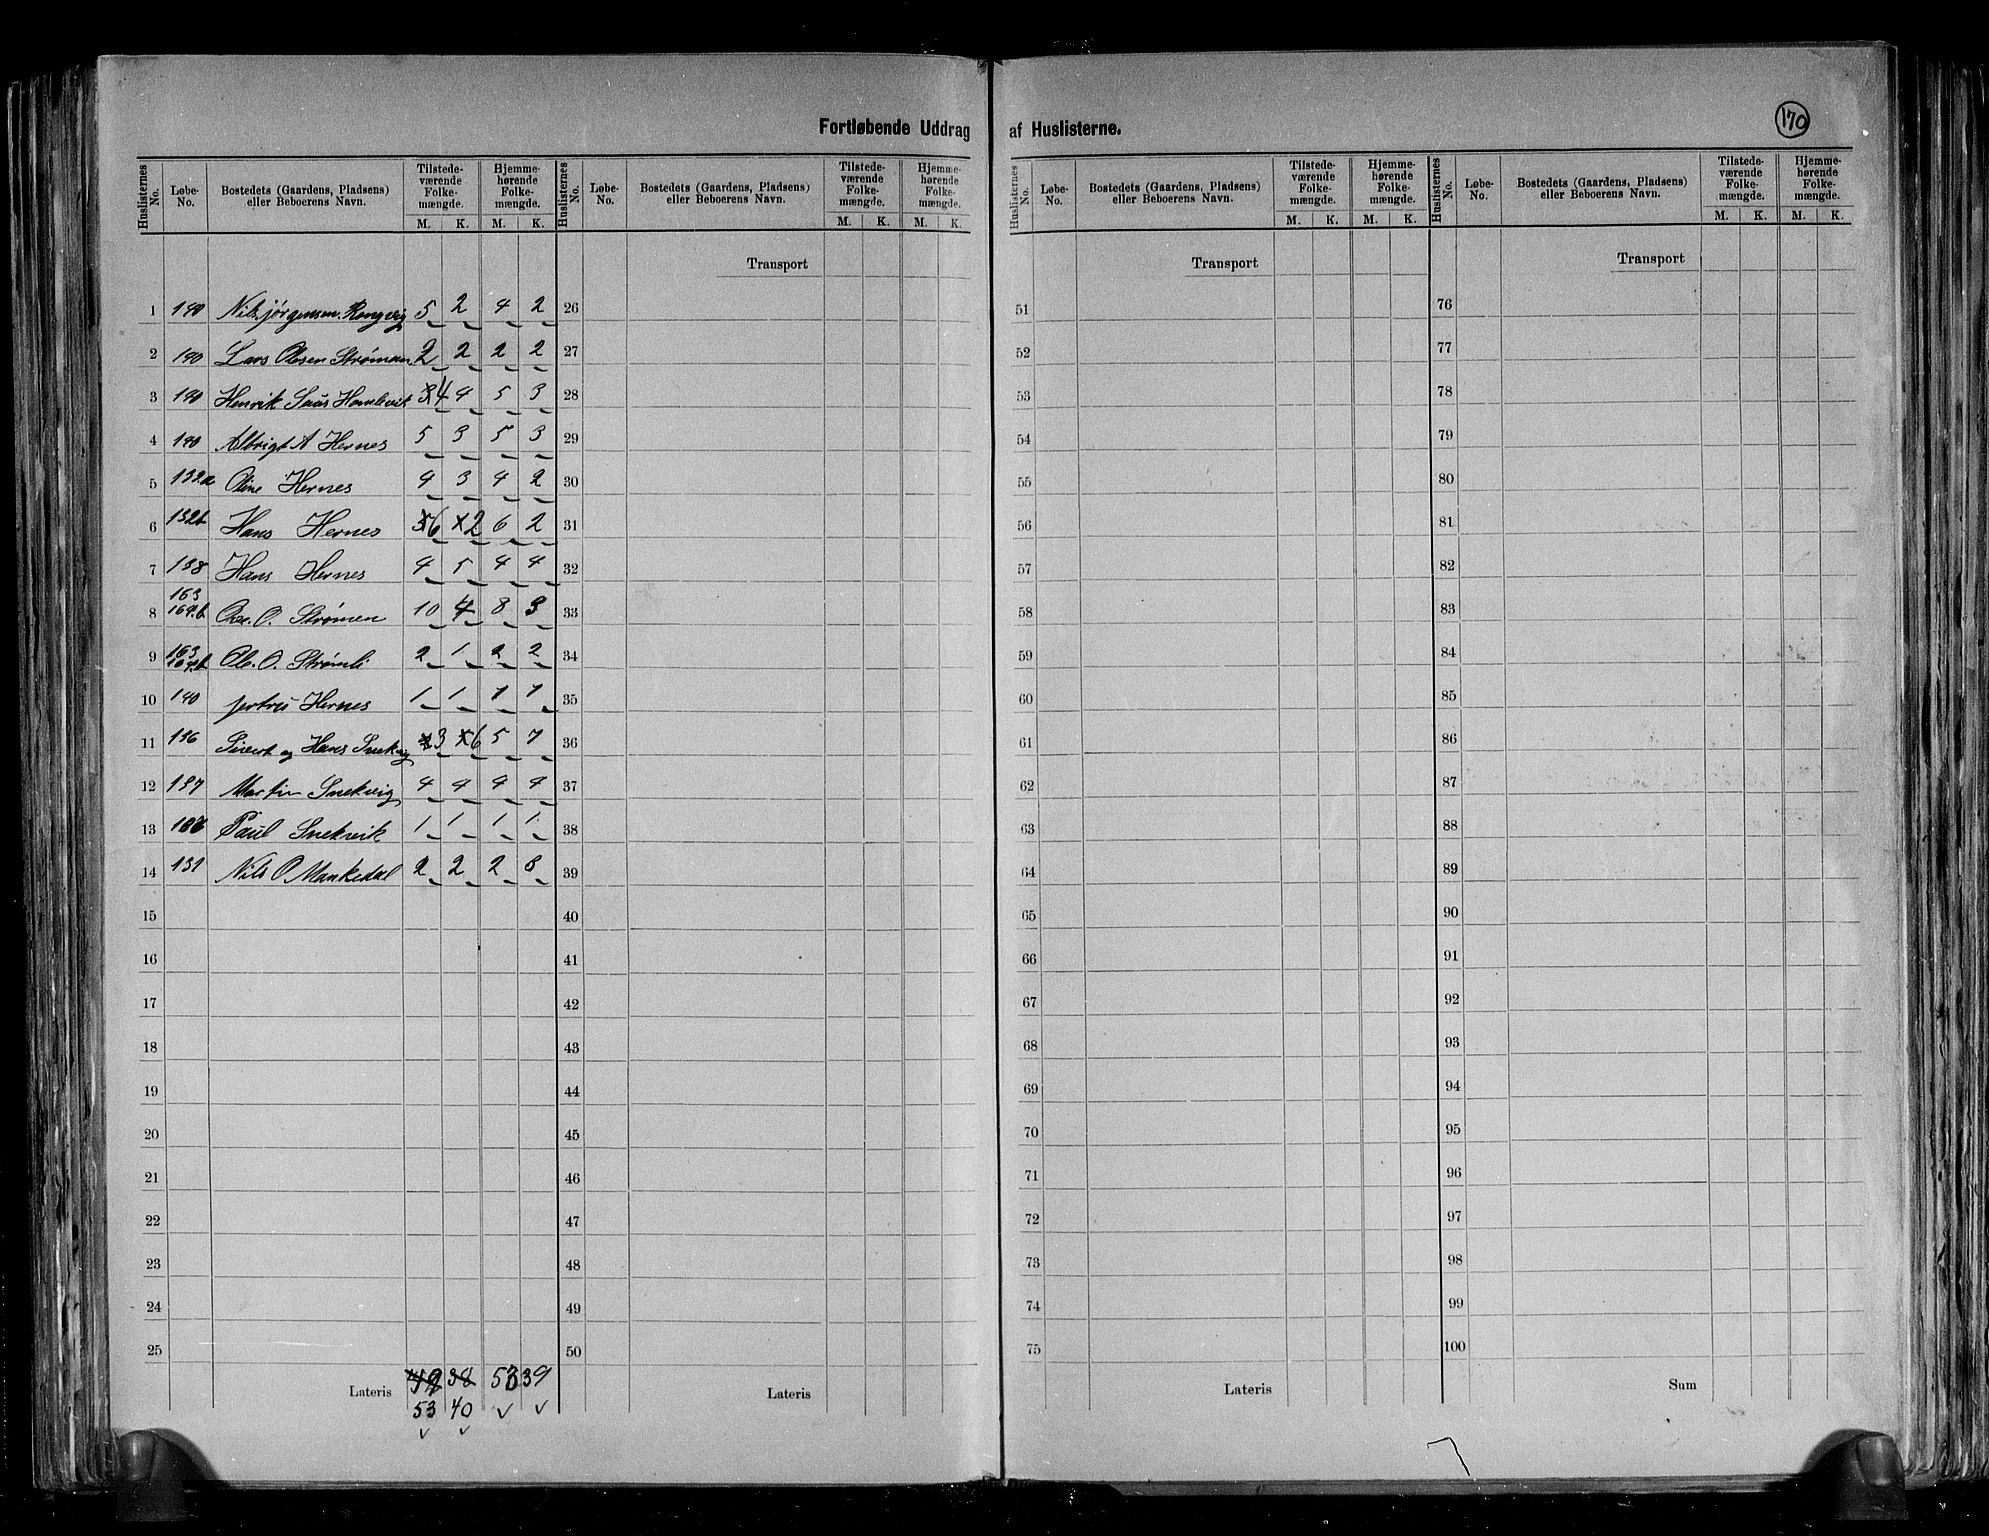 Fortløbende Uddrag af Huslisterne.
170
Huslisternes No. | Løbe-No. | Bostedets (Gaardens, Pladsens) eller Beboerens Navn. | Tilstedeværende Folkemængde. M. K. | Hjemmehørende Folkemængde. M. K.
Huslisternes No. | Løbe-No. | Bostedets (Gaardens, Pladsens) eller Beboerens Navn. | Tilstedeværende Folkemængde. M. K. | Hjemmehørende Folkemængde. M. K.
Huslisternes No. | Løbe-No. | Bostedets (Gaardens, Pladsens) eller Beboerens Navn. | Tilstedeværende Folkemængde. M. K. | Hjemmehørende Folkemængde. M. K.
Huslisternes No. | Løbe-No. | Bostedets (Gaardens, Pladsens) eller Beboerens Navn. | Tilstedeværende Folkemængde. M. K. | Hjemmehørende Folkemængde. M. K.
Transport Transport Transport
1 140 Nils jørgensen Rongvig 5 2 4 2 26 51 76
2 140 Lars Olsen Strøman 2 2 2 2 27 52 77
3 140 Henrik Hamlevik 4 4 5 3 28 53 78
4 140 Albrigt A Hernes 5 3 5 3 29 54 79
5 132a Oline Hernes 4 3 4 2 30 55 80
6 132b Hans Hernes 6 2 6 2 31 56 81
7 138 Hans Hernes 4 5 4 4 32 57 82
8 163 164.b O. Strømen 10 4 8 3 33 58 83
9 163 164.b Ole. O. Strømli 2 1 2 2 34 59 84
10 140 jertru Hernes 1 1 1 1 35 60 85
11 136 Sivert og Hans Snekvig 3 6 5 7 36 61 86
12 137 Martin Snekvig 4 4 4 4 37 62 87
13 Paul Snekvik 1 1 1 1 38 63 88
14 131 Nils O Mankedal 2 2 2 3 39 64 89
15 40 65 90
16 41 66 91
17 42 67 92
18 43 68 93
19 44 69 94
20 45 70 95
21 46 71 96
22 47 72 97
23 48 73 98
24 49 74 99
25 50 75 100
Lateris 49 38 53 39 Lateris Lateris Sum
53 40